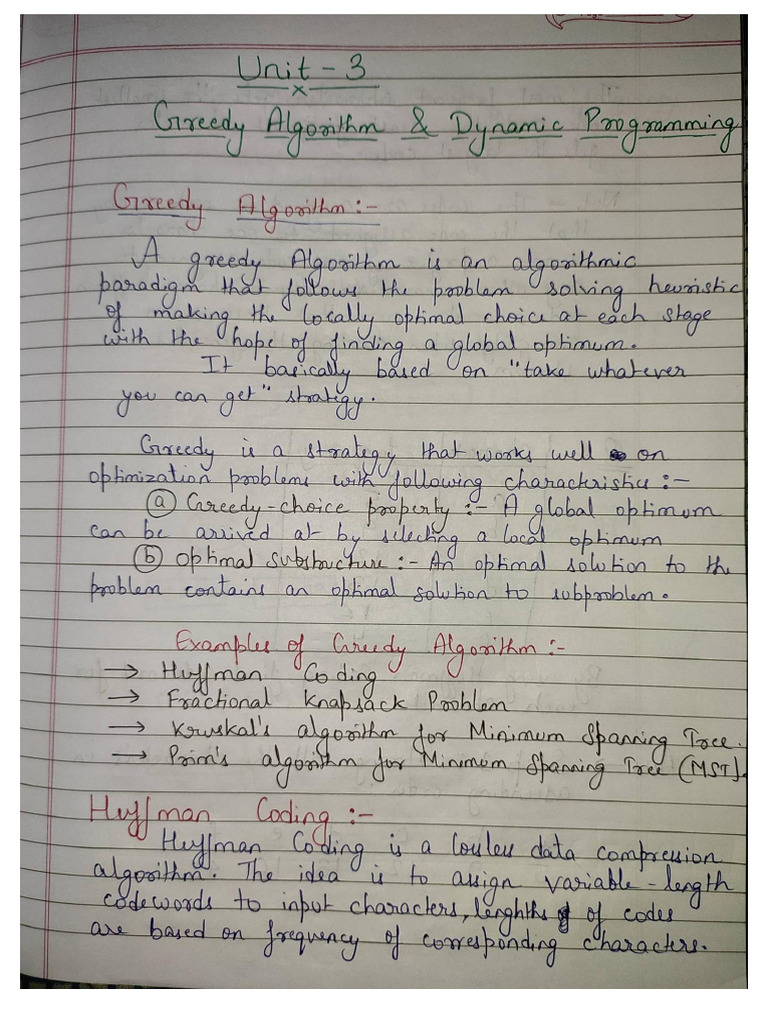 Unit - 3
Greedy Algorithm & Dynamic Programming
Greedy Algorithm :-
A greedy Algorithm is an algorithmic
paradigm that follows the problem solving heuristic
of making the locally optimal choice at each stage
with the hope of finding a global optimum.
It basically based on "take whatever
you can get" strategy.
Greedy is a strategy that works well on
optimization problems with following characteristics :-
(a) Greedy-choice property :- A global optimum
can be arrived at by selecting a local optimum
(b) Optimal substructure :- An optimal solution to the
problem contains an optimal solution to subproblem.
Examples of Greedy Algorithm :-
→ Huffman Coding
→ Fractional Knapsack Problem
→ Kruskal's algorithm for Minimum Spanning Tree.
→ Prim's algorithm for Minimum Spanning Tree (MST).
Huffman Coding :-
Huffman Coding is a lossless data compression
algorithm. The idea is to assign variable-length
codewords to input characters, lenghths of codes
are based on frequency of corresponding characters.